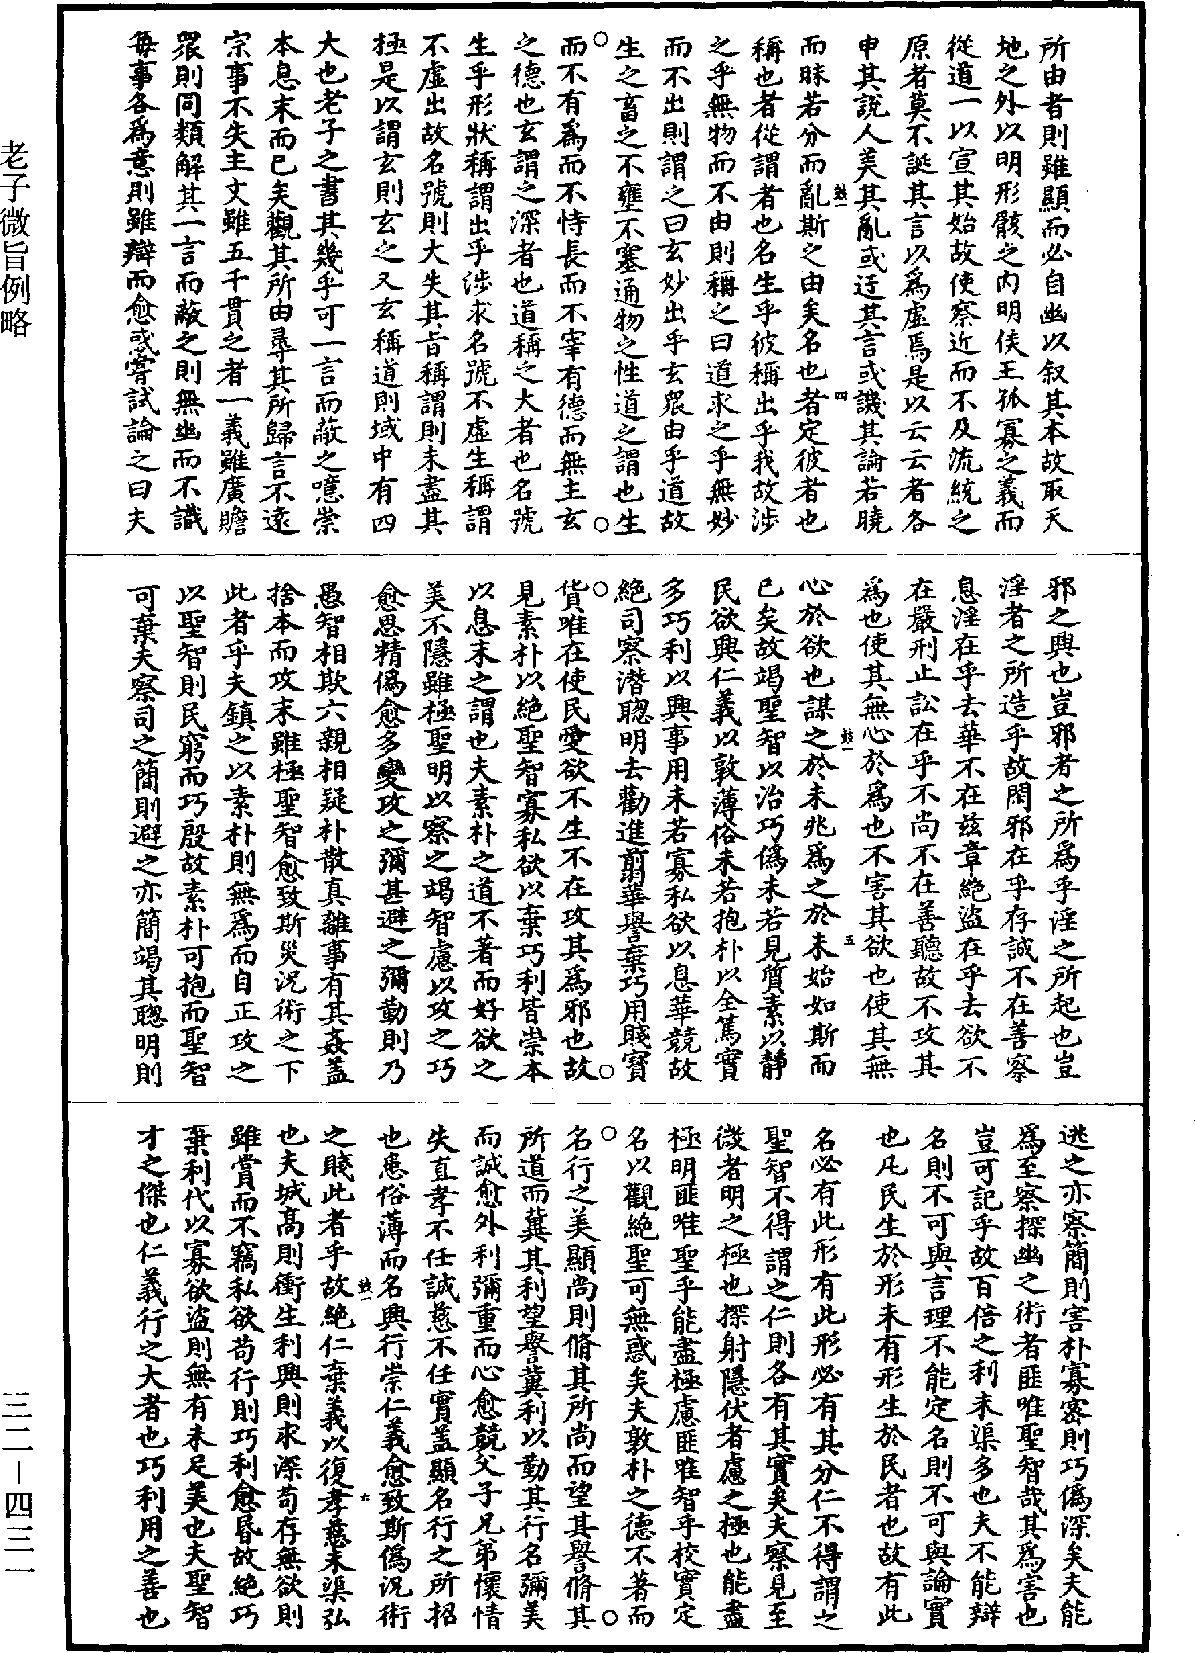 老子微旨例略
所由者則雖顯而必自幽以叙其本故取天
地之外以明形骸之内明侯王孤寡之義而
從道一以宣其始故使察近而不及流統之
原者莫不誕其言以爲虛焉是以云云者各
申其說人美其亂或迂其言或譏其論若曉
而昧若分而亂斯之由矣名也者定彼者也
稱也者從謂者也名生乎彼稱出乎我故涉
之乎無物而不由則稱之曰道求之乎無妙
而不出則謂之曰玄妙出乎玄衆由乎道故
生之畜之不壅不塞通物之性道之謂也生
而不有為而不恃長而不宰有德而無主玄
之德也玄謂之深者也道稱之大者也名號
生乎形狀稱謂出乎涉求名號不虛生稱謂
不虛出故名號則大失其旨稱謂則未盡其
極是以謂玄則玄之又玄稱道則域中有四
大也老子之書其幾乎可一言而蔽之噫崇
本息末而已矣觀其所由尋其所歸言不遠
宗事不失主文雖五千貫之者一義雖廣贍
衆則同類解其一言而蔽之則無幽而不識
每事各爲意則雖辯而愈惑嘗試論之曰夫
邪之興也豈邪者之所爲乎淫之所起也豈
淫者之所造乎故閑邪在乎存誠不在善察
息淫在乎去華不在兹章絶盜在乎去欲不
在嚴刑止訟在乎不尚不在善聽故不攻其
爲也使其無心於爲也不害其欲也使其無
心於欲也謀之於未兆爲之於未始如斯而
已矣故竭聖智以治巧僞未若見質素以靜
民欲興仁義以敦薄俗未若抱朴以全篤實
多巧利以興事用未若寡私欲以息華競故
絶司察潜聰明去勸進剪華譽棄巧用賤寶
貨唯在使民愛欲不生不在攻其爲邪也故
見素朴以絶聖智寡私欲以棄巧利皆崇本
以息末之謂也夫素朴之道不著而好欲之
美不隱雖極聖明以察之竭智慮以攻之巧
愈思精僞愈多變攻之彌甚避之彌勤則乃
愚智相欺六親相疑朴散真離事有其姦蓋
捨本而攻末雖極聖智愈致斯災况術之下
此者乎夫鎮之以素朴則無爲而自正攻之
以聖智則民窮而巧殷故素朴可抱而聖智
可棄夫察司之簡則避之亦簡竭其聰明則
逃之亦察簡則害朴寡密則巧僞深矣夫能
爲至察探幽之術者匪唯聖智哉其爲害也
豈可記乎故百倍之利未渠多也夫不能辯
名則不可與言理不能定名則不可與論實
也凡民生於形未有形生於民者也故有此
名必有此形有此形必有其分仁不得謂之
聖智不得謂之仁則各有其實矣夫察見至
微者明之極也探射隱伏者慮之極也能盡
極明匪唯聖乎能盡極慮匪唯智乎校實定
名以觀絶聖可無惑矣夫敦朴之德不著而
名行之美顯尚則脩其所尚而望其譽脩其
所道而冀其利望譽冀利以勤其行名彌美
而誠愈外利彌重而心愈競父子兄弟懷情
失直孝不任誠慈不任實蓋顯名行之所招
也患俗薄而名興行崇仁義愈致斯僞况術
之賤此者乎故絶仁棄義以復孝慈未渠弘
也夫城高則衝生利興則求深苟存無欲則
雖賞而不竊私欲苟行則巧利愈昏故絶巧
棄利代以寡欲盜則無有未足美也夫聖智
才之傑也仁義行之大者也巧利用之善也
三二－四三一